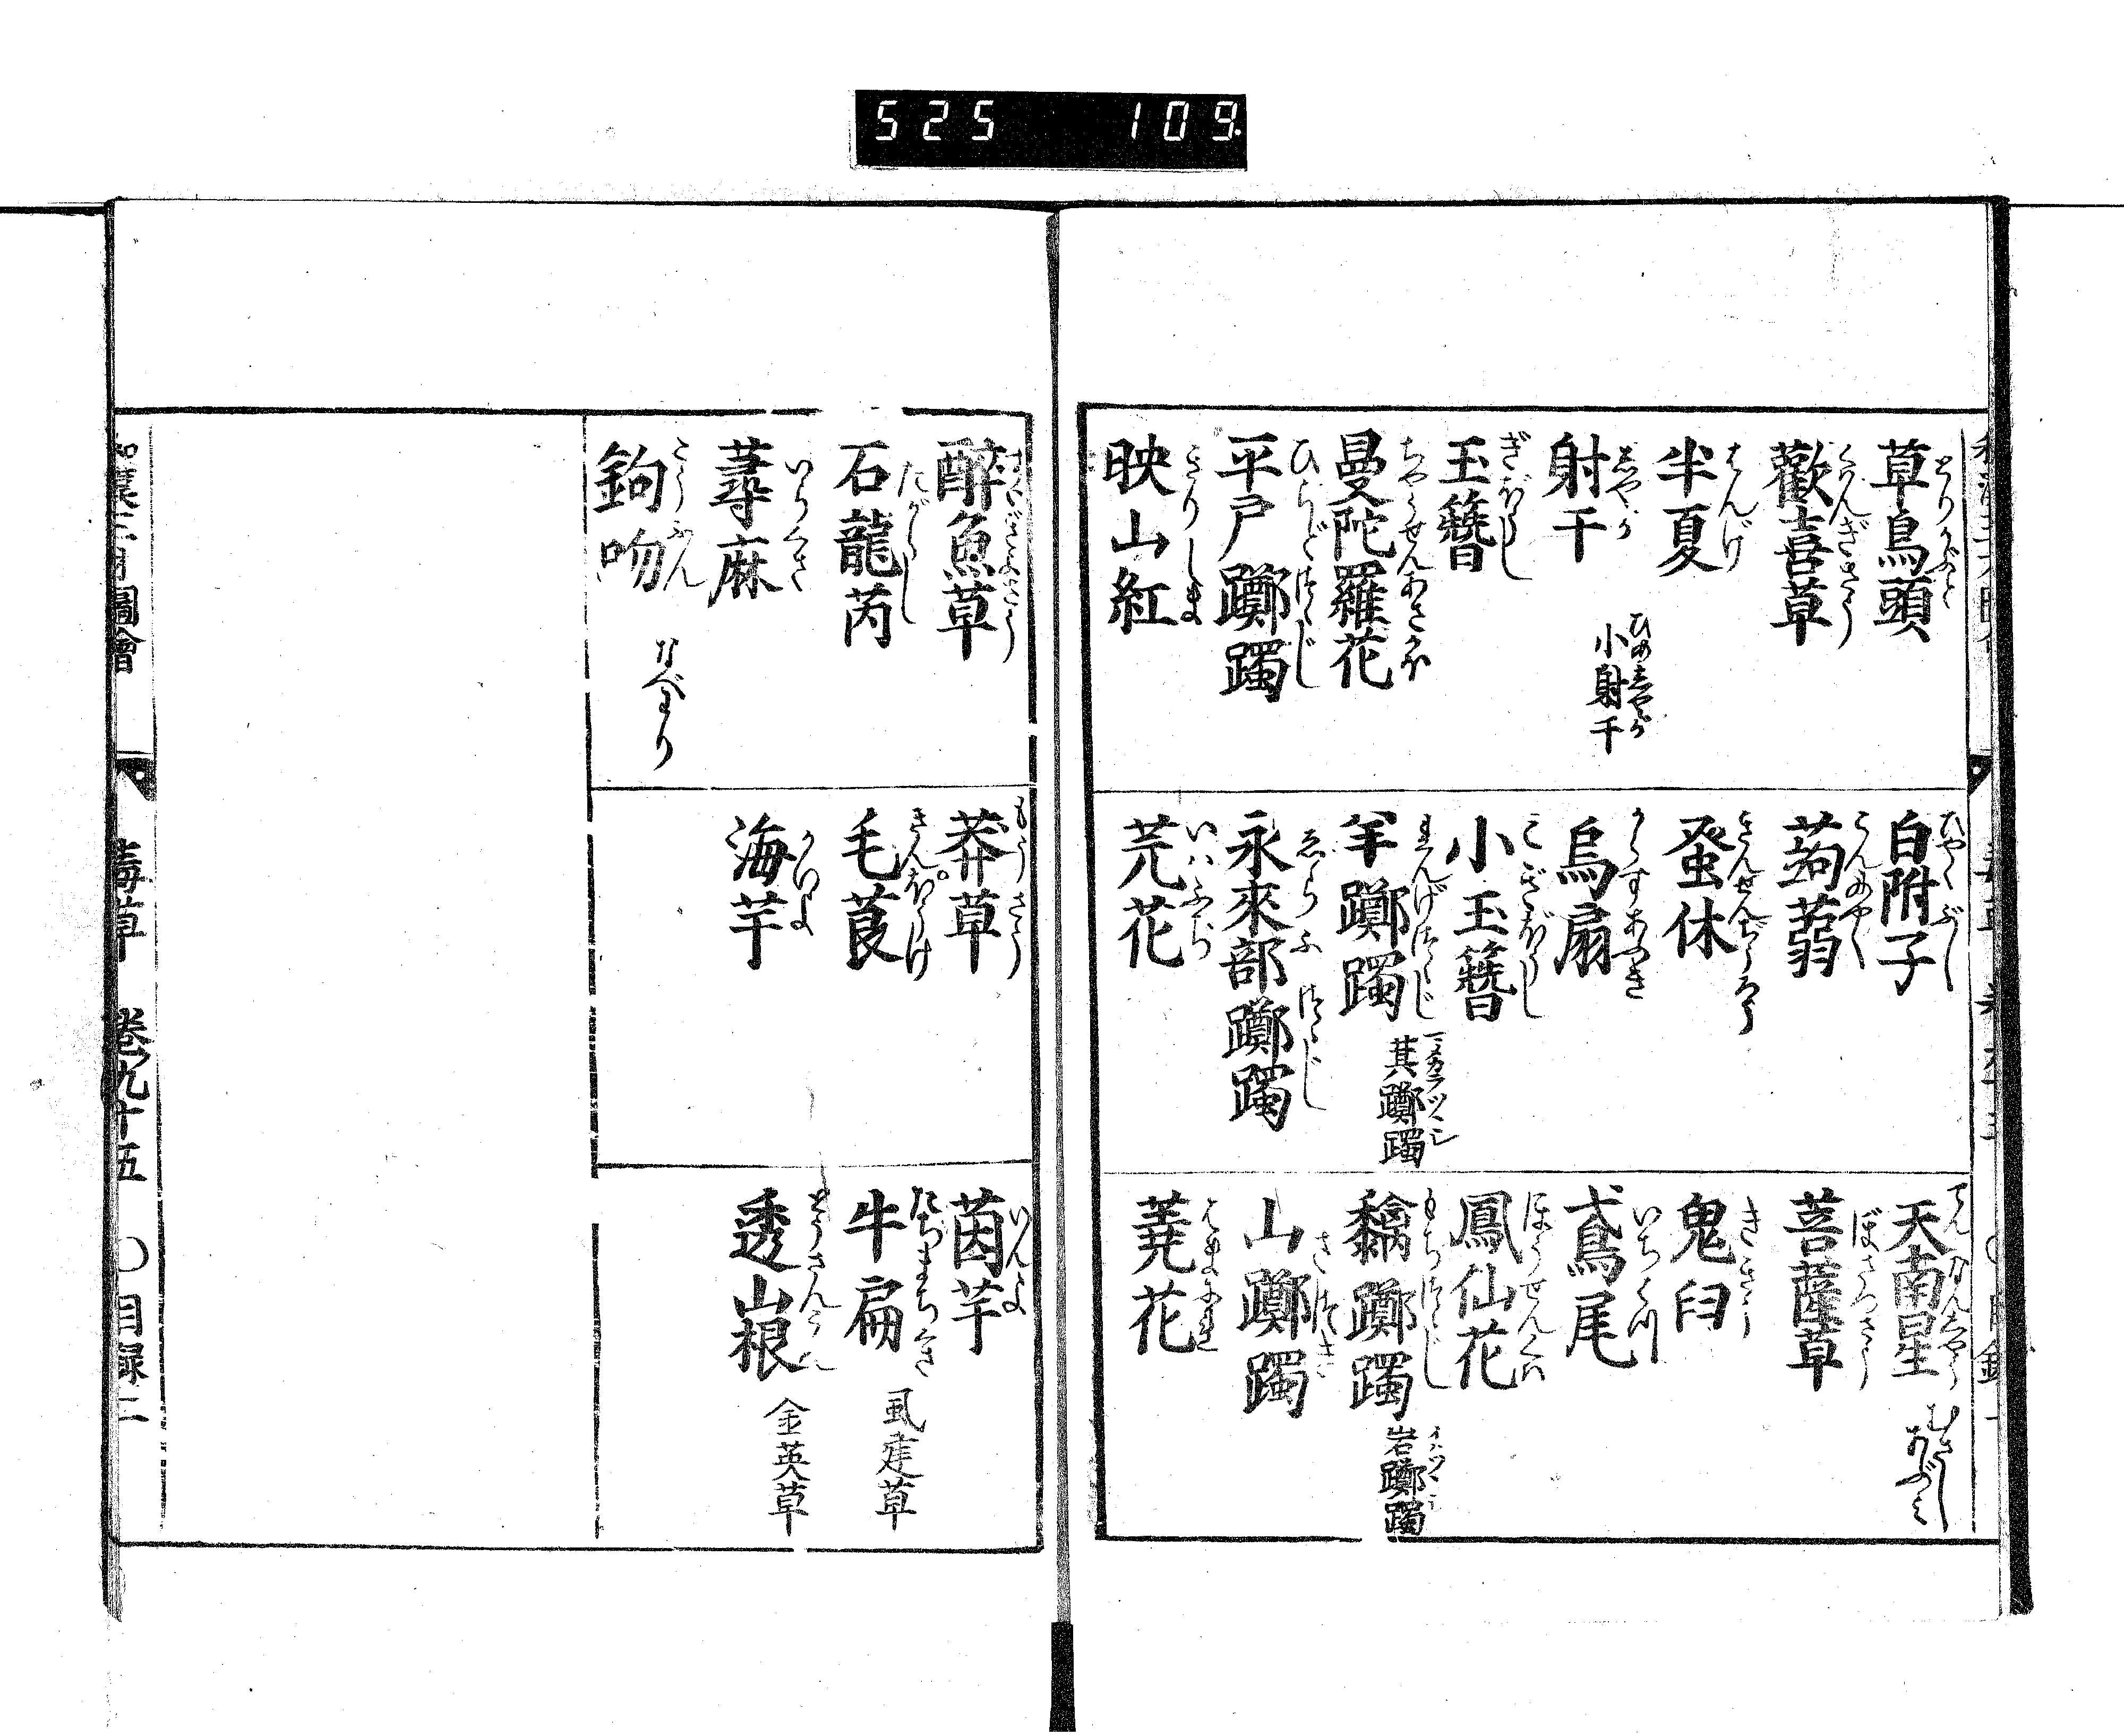 525 109
草烏頭 とりかぶと
白附子 ひやくぶし
天南星 てんなんしやう むさしあぶみ
歡喜草 くはんぎさう
蒟蒻 こんにやく
菩薩草 ぼさつさう
半夏 はんげ
蚤休
鬼臼 ききう
射干 しやが 小射干 ひめしやが
烏扇 からすあふぎ
鳶尾 いちはつ
玉簪 ぎぼうし
小玉簪 こぎぼうし
鳳仙花 ほうせんくは
曼陀羅花 ちやうせんあさがほ
羊躑躅 れんげつつじ 其躑躅
黐躑躅 もちつつじ 岩躑躅 イハツツジ
平戸躑躅 ひらどつつじ
永來部躑躅 ゑらふつつじ
山躑躅 さつき
映山紅 きりしま
芫花 いはふぢ
蕘花 はまにれ
醉魚草
莽草 もうさう
茵芋 いんう
石龍芮 たがらし
毛茛 きんぽうけ
牛扁 たちまちくさ 虱建草
蕁麻 いらくさ
海芋 かいう
透山根 とうさんこん 金英草
鉤吻 こうふん なべわり
和漢三才圖會 毒草 卷九十五 ○目録二